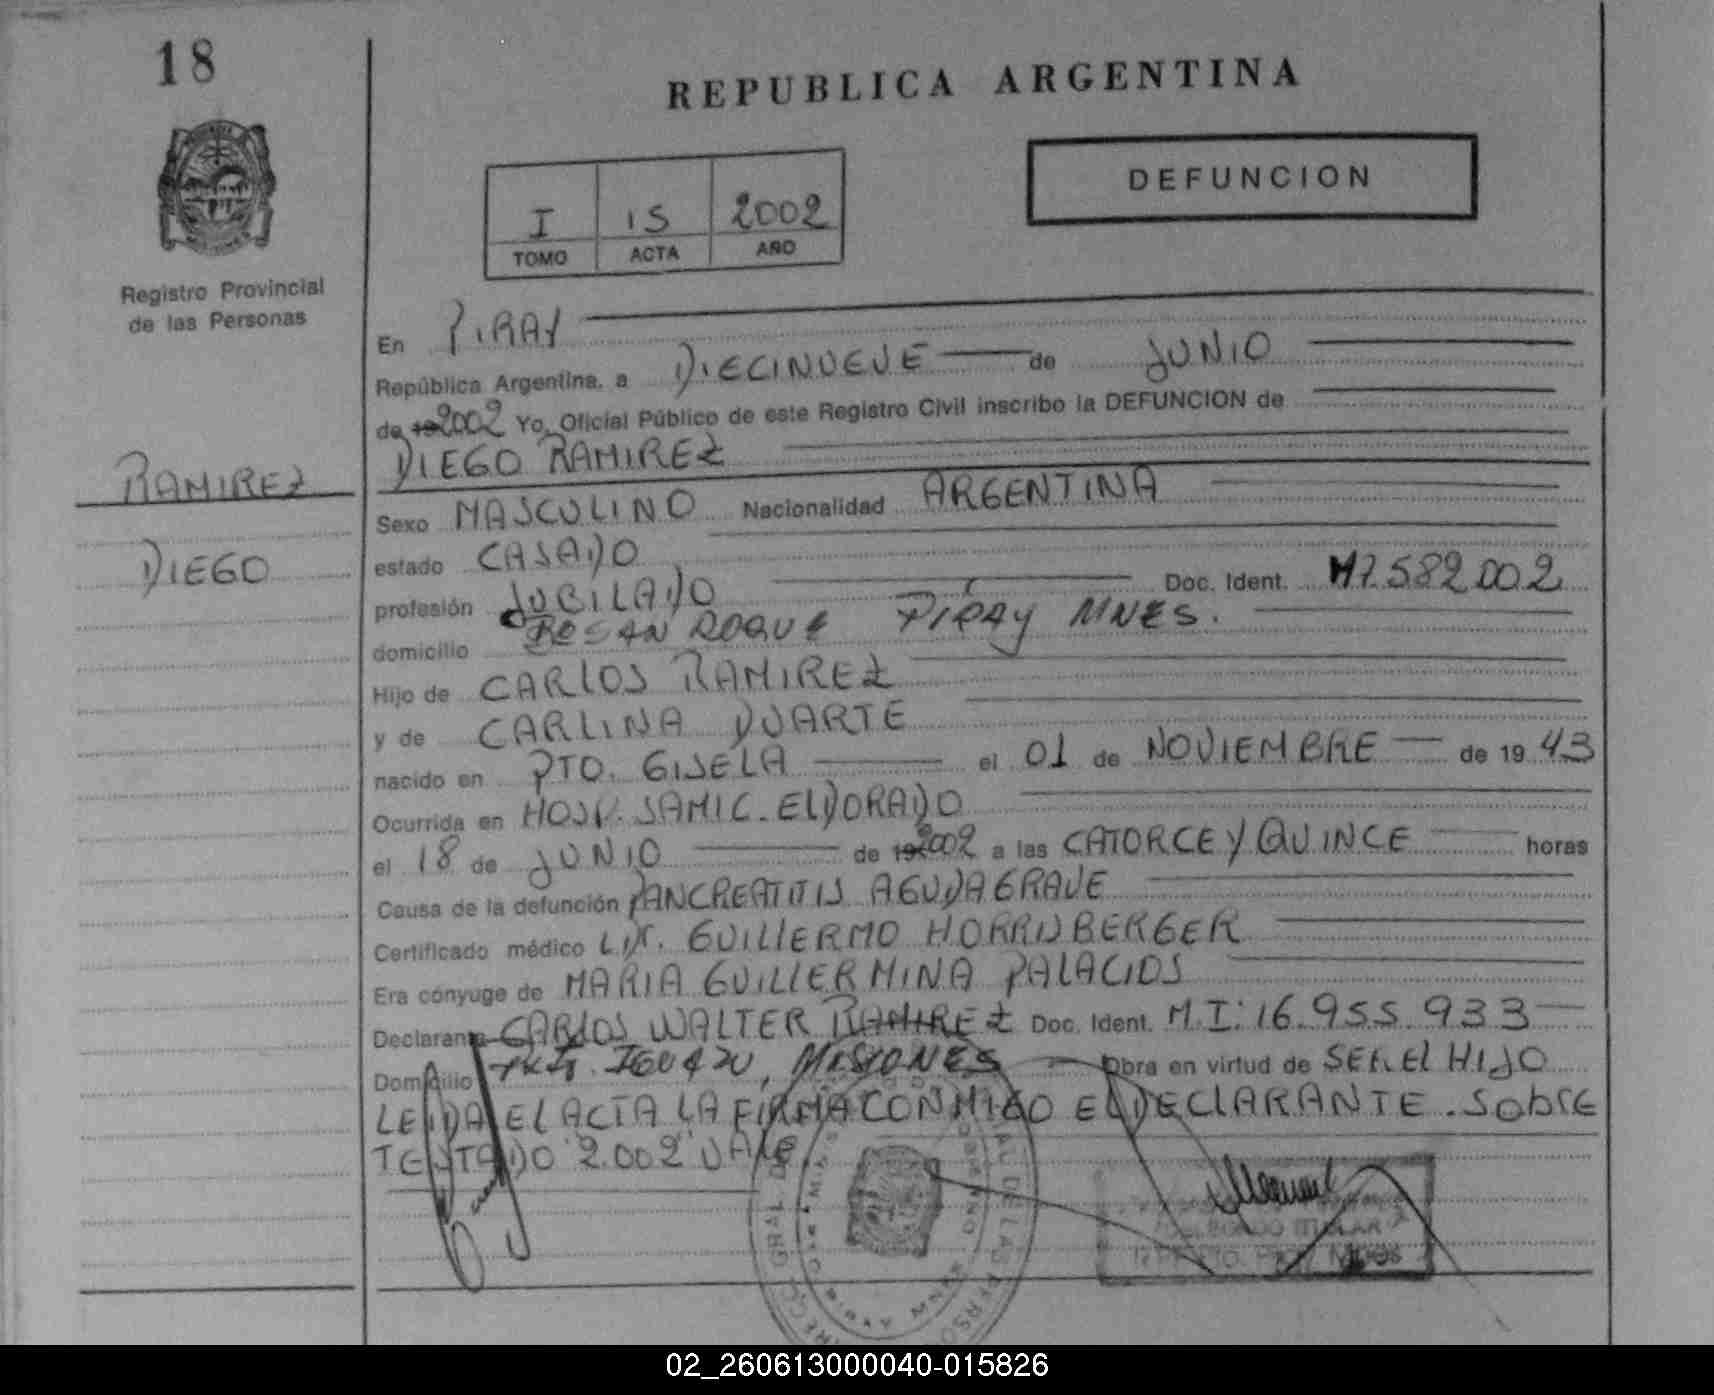 18
REPUBLICA ARGENTINA
DEFUNCION
I 15 2002
TOMO ACTA AÑO
Registro Provincial
de las Personas
En PIRAY
República Argentina, a DIECINUEVE de JUNIO
de 19 2002 Yo, Oficial Público de este Registro Civil inscribo la DEFUNCION de
DIEGO RAMIREZ
RAMIREZ
DIEGO
Sexo MASCULINO Nacionalidad ARGENTINA
estado CASADO
profesión JUBILADO Doc. Ident. M7.582.002
domicilio Bº SAN ROQUE PIRAY MNES.
Hijo de CARLOS RAMIREZ
y de CARLINA DUARTE
nacido en PTO. GISELA el 01 de NOVIEMBRE de 19 43
Ocurrida en HOSP. SAMIC. ELDORADO
el 18 de JUNIO de 19 2002 a las CATORCE Y QUINCE horas
Causa de la defunción PANCREATITIS AGUDA GRAVE
Certificado médico Dr. GUILLERMO
Era cónyuge de MARIA GUILLERMINA PALACIOS
Declarante CARLOS WALTER RAMIREZ Doc. Ident. M.I: 16.955.933
Domicilio IGUAZU, MISIONES Obra en virtud de SER EL HIJO
LEIDA EL ACTA LA FIRMA CONMIGO EL DECLARANTE. Sobre
TESTADO "2.002" VALE
DELEGADO TITULAR
02_260613000040-015826